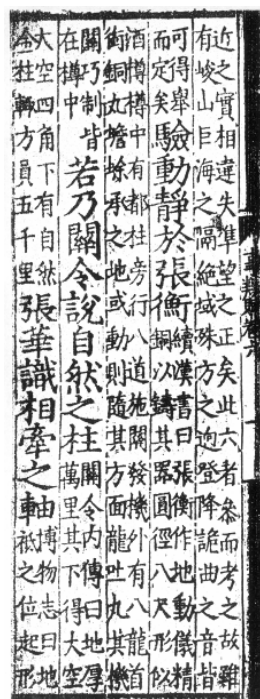 近之實相違失準望之正矣此六者參而考之故雖
有峻山巨海之隔絕域殊方之迥登降詭曲之音皆
可得舉
而定矣
驗動靜於張衡
續漢書曰張衡作地動儀精
銅以鑄其器圓徑八尺形似
酒樽樽中有都柱旁行八道施關發機外有八龍首
銜銅丸蟾蜍承之地或動則隨其方面龍吐丸其機
關巧制皆
在樽中
若乃關令說自然之柱
關令內傳曰地厚
萬里其下得大空
大空四角下有自然
金柱輒方員五千里
張華識相牽之軸
博物志曰地
祇之位起形